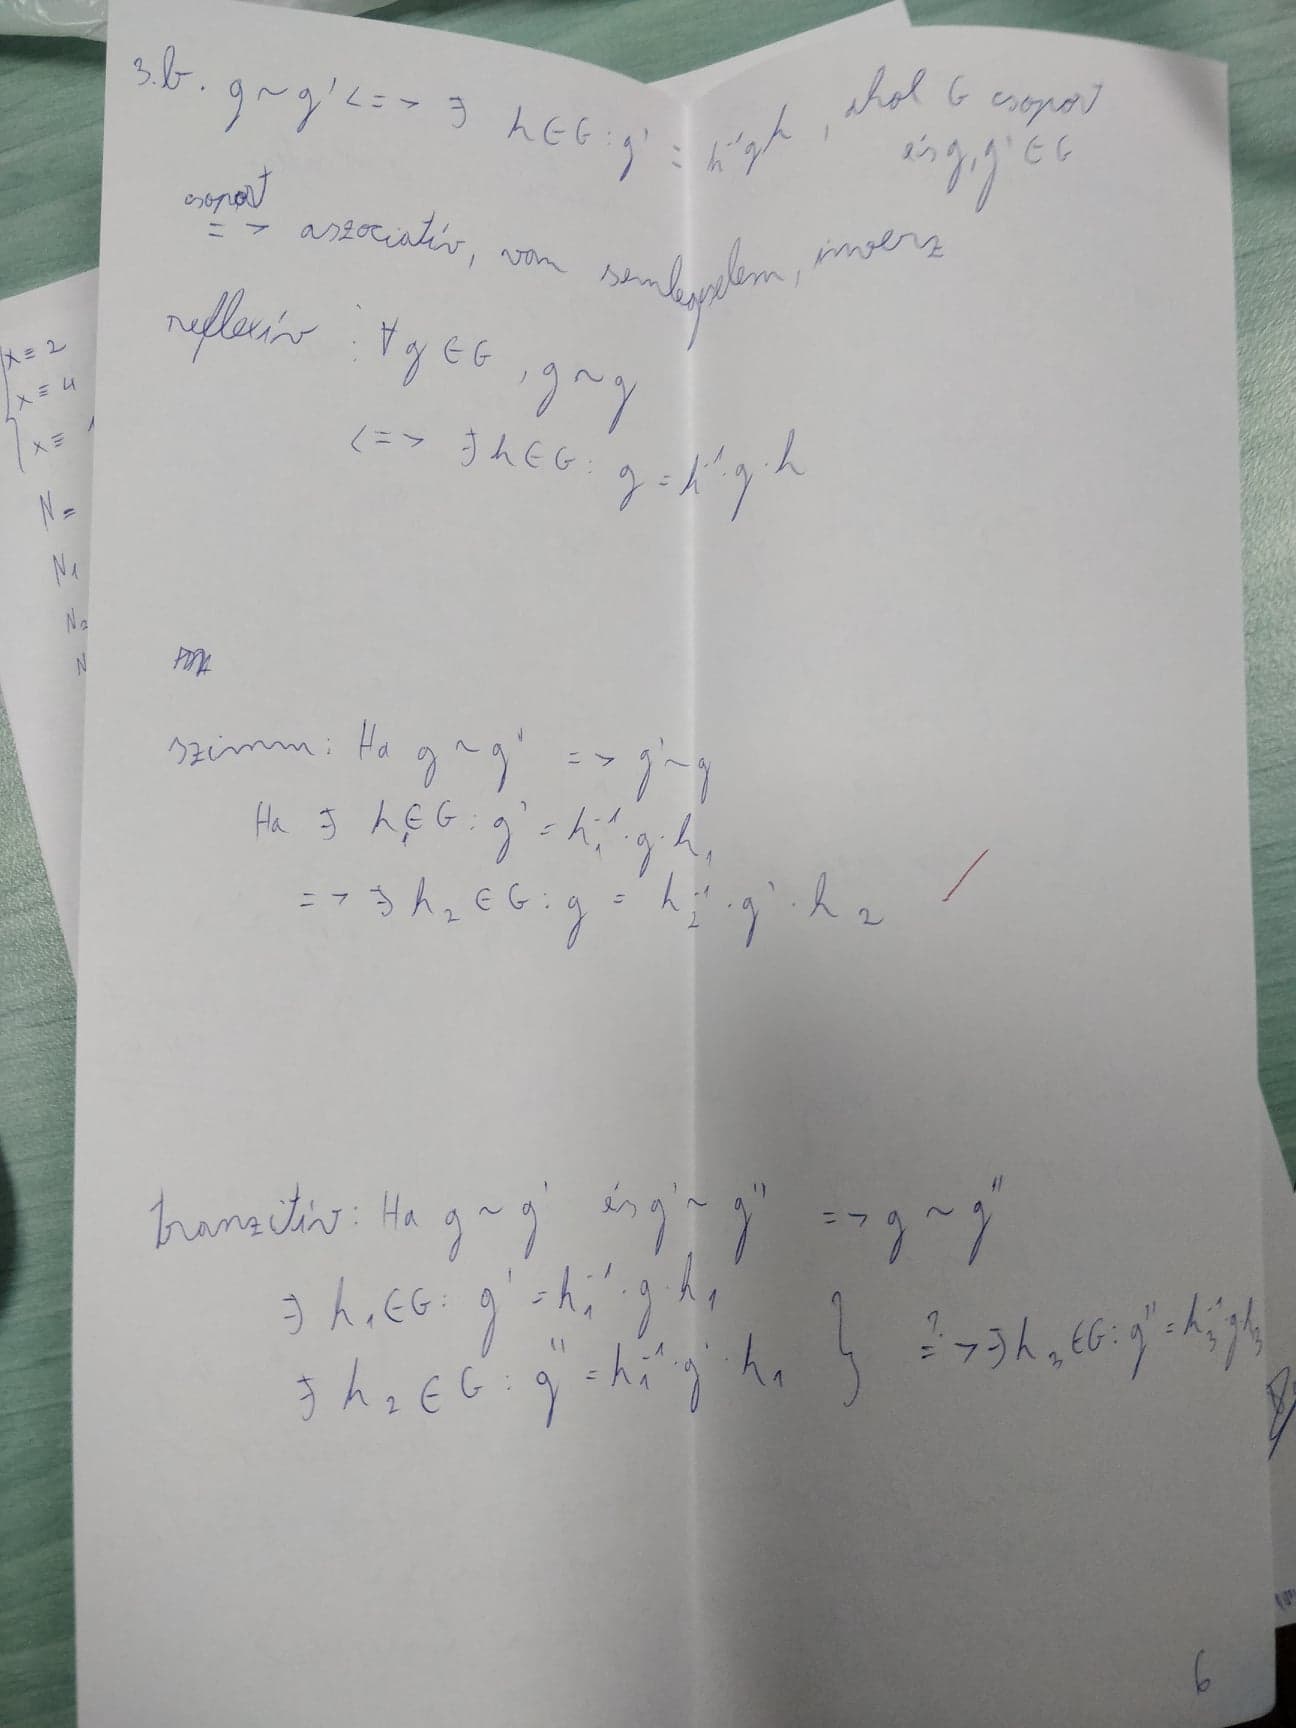 3.b. g ~ g' <=> ∃ h ∈ G : g' = h⁻¹gh, ahol G csoport
és g, g' ∈ G
csoport
=> asszociatív, van semlegeselem, inverz
reflexív : ∀ g ∈ G, g ~ g
<=> ∃ h ∈ G : g = h⁻¹·g·h
szimm: Ha g ~ g' => g' ~ g
Ha ∃ h₁ ∈ G : g' = h₁⁻¹·g·h₁
=> ∃ h₂ ∈ G : g = h₂⁻¹·g'·h₂
tranzitív: Ha g ~ g' és g' ~ g'' => g ~ g''
∃ h₁ ∈ G : g' = h₁⁻¹·g·h₁
∃ h₂ ∈ G : g'' = h₁⁻¹·g'·h₁ } ?=> ∃ h₃ ∈ G : g'' = h₃⁻¹gh₃
6
x ≡ 2
x ≡ 4
x ≡
N =
N₁
N₂
N